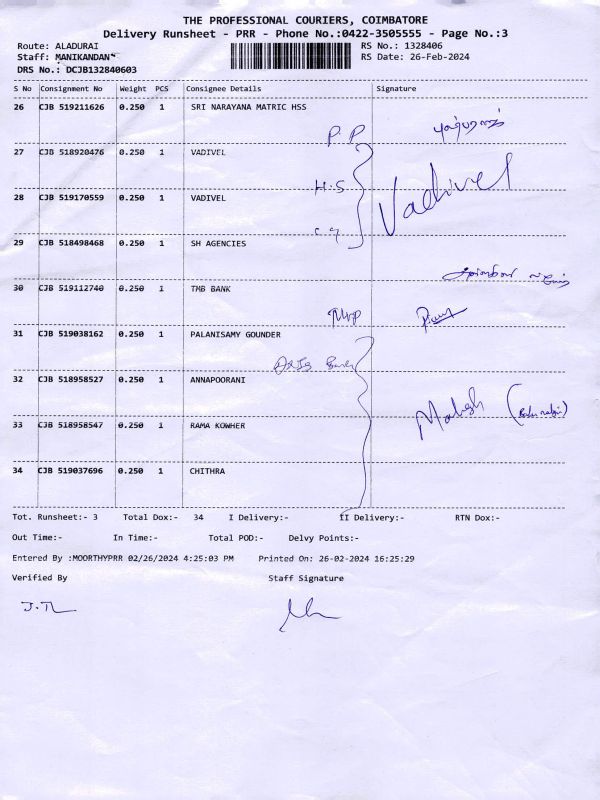 THE PROFESSIONAL COURIERS, COIMBATORE
Delivery Runsheet - PRR - Phone No.:0422-3505555 - Page No.:3
Route: ALADURAI RS No.: 1328406
Staff: MANIKANDAN RS Date: 26-Feb-2024
DRS No.: DCJB132840603
S No Consignment No Weight PCS Consignee Details Signature
26 CJB 519211626 0.250 1 SRI NARAYANA MATRIC HSS
P.P
27 CJB 518920476 0.250 1 VADIVEL
H.S Vadivel
28 CJB 519170559 0.250 1 VADIVEL
29 CJB 518498468 0.250 1 SH AGENCIES
30 CJB 519112740 0.250 1 TMB BANK
31 CJB 519038162 0.250 1 PALANISAMY GOUNDER
32 CJB 518958527 0.250 1 ANNAPOORANI
33 CJB 518958547 0.250 1 RAMA KOWHER
34 CJB 519037696 0.250 1 CHITHRA
Tot. Runsheet:- 3 Total Dox:- 34 I Delivery:- II Delivery:- RTN Dox:-
Out Time:- In Time:- Total POD:- Delvy Points:-
Entered By :MOORTHYPRR 02/26/2024 4:25:03 PM Printed On: 26-02-2024 16:25:29
Verified By Staff Signature